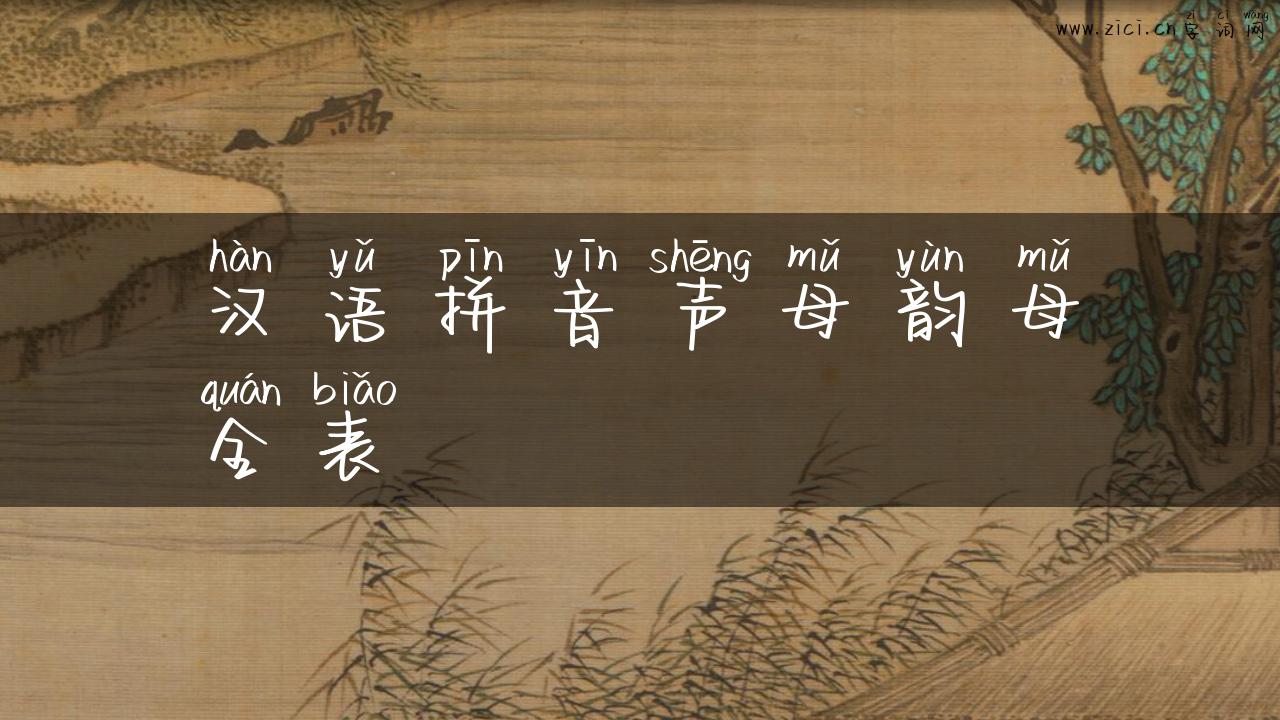 zì cí wǎng
www.zici.cn字词网
hàn yǔ pīn yīn shēng mǔ yùn mǔ
汉语拼音声母韵母
quán biǎo
全表